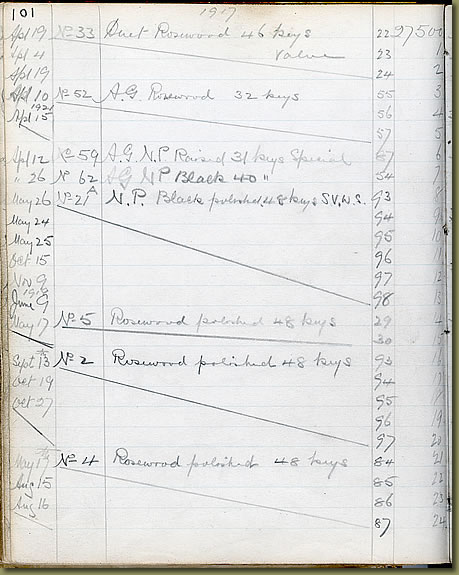 101 1917
Apl 19 No 33 Duet Rosewood 46 keys 22 27500
Apl 4 Value 23 1
Apl 19 24 2
Apl 10 No 52 A.G. Rosewood 32 keys 55 3
1921
Apl 15 56 4
57 5
Apl 12 No 59 A.G. N.P Raised 31 keys Special 67 6
" 26 No 62 AG NP Black 40 " 54 7
May 26 No 21A N.P. Black polished 48 keys S.V.W.S. 93 8
May 24 94 9
May 25 95 10
Oct 15 96 11
Nov 9 97 12
June 9 98 13
May 17 No 5 Rosewood polished 48 keys 29 14
30 15
Sept 13 No 2 Rosewood polished 48 keys 93 16
Oct 19 94 17
Oct 27 95 18
96 19
97 20
May 17 No 4 Rosewood polished 48 keys 84 21
Aug 15 85 22
Aug 16 86 23
87 24